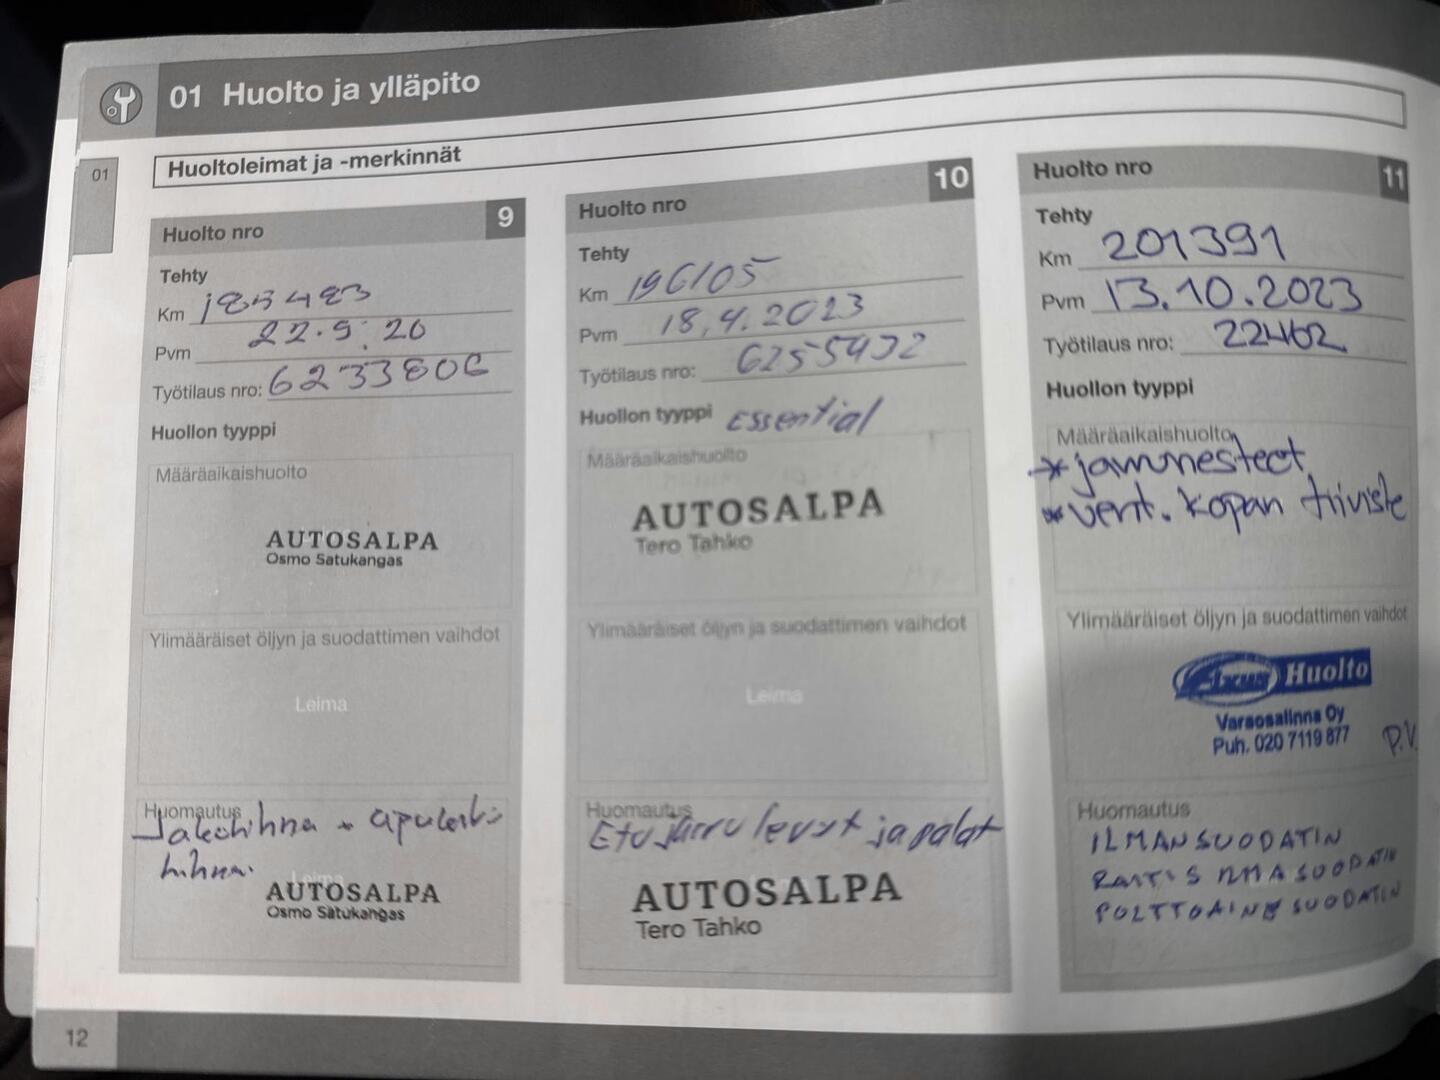 01 Huolto ja ylläpito
01
Huoltoleimat ja -merkinnät
Huolto nro 9
Tehty
Km 185483
Pvm 22.9.20
Työtilaus nro: 6233806
Huollon tyyppi
Määräaikaishuolto
AUTOSALPA
Osmo Satukangas
Ylimääräiset öljyn ja suodattimen vaihdot
Leima
Huomautus
Jakohihna + apulaite
hihna.
Leima
AUTOSALPA
Osmo Satukangas
Huolto nro 10
Tehty
Km 196105
Pvm 18.4.2023
Työtilaus nro: 6255432
Huollon tyyppi Essential
Määräaikaishuolto
AUTOSALPA
Tero Tahko
Ylimääräiset öljyn ja suodattimen vaihdot
Leima
Huomautus
Etujarru levyt ja palat
AUTOSALPA
Tero Tahko
Huolto nro 11
Tehty
Km 201391
Pvm 13.10.2023
Työtilaus nro: 22462
Huollon tyyppi
Määräaikaishuolto
* jarrunesteet
* vent. kopan tiiviste
Ylimääräiset öljyn ja suodattimen vaihdot
Fixus Huolto
Varaosalinna Oy
Puh. 020 7119 877
P.V
Huomautus
ILMANSUODATIN
RAITIS ILMASUODATIN
POLTTOAINESUODATIN
12